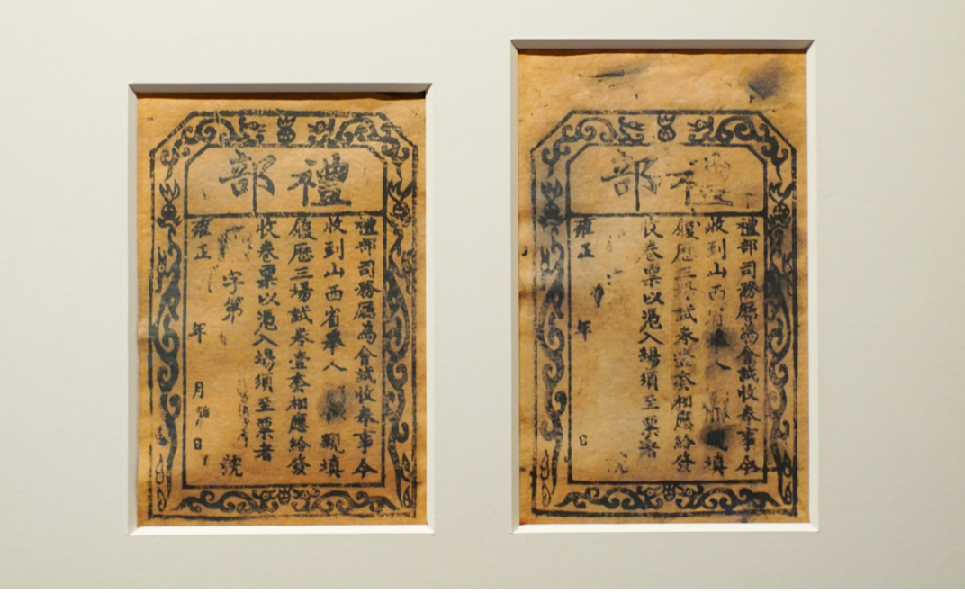 禮部
禮部司務廳為會試收卷事今
收到山西省舉人 親填
履歷三場試卷壹套相應給發
收卷票以憑入場須至票者
字第 號
雍正 年 月 日
禮部
禮部司務廳為會試收卷事今
收到山西省 人 填
履歷三場試卷壹套相應給發
收卷票以憑入場須至票者
號
雍正 年 日